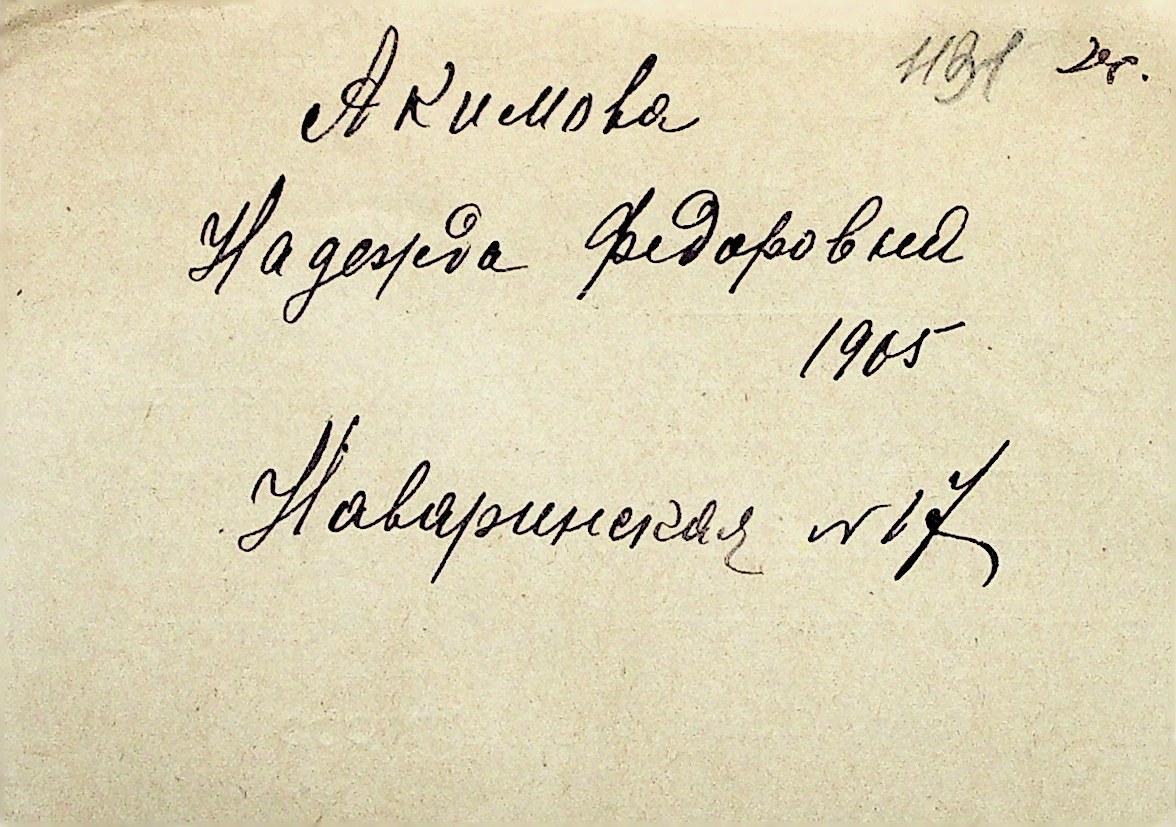 Акимова
Надежда Федоровна
1905
Наваринская № 17